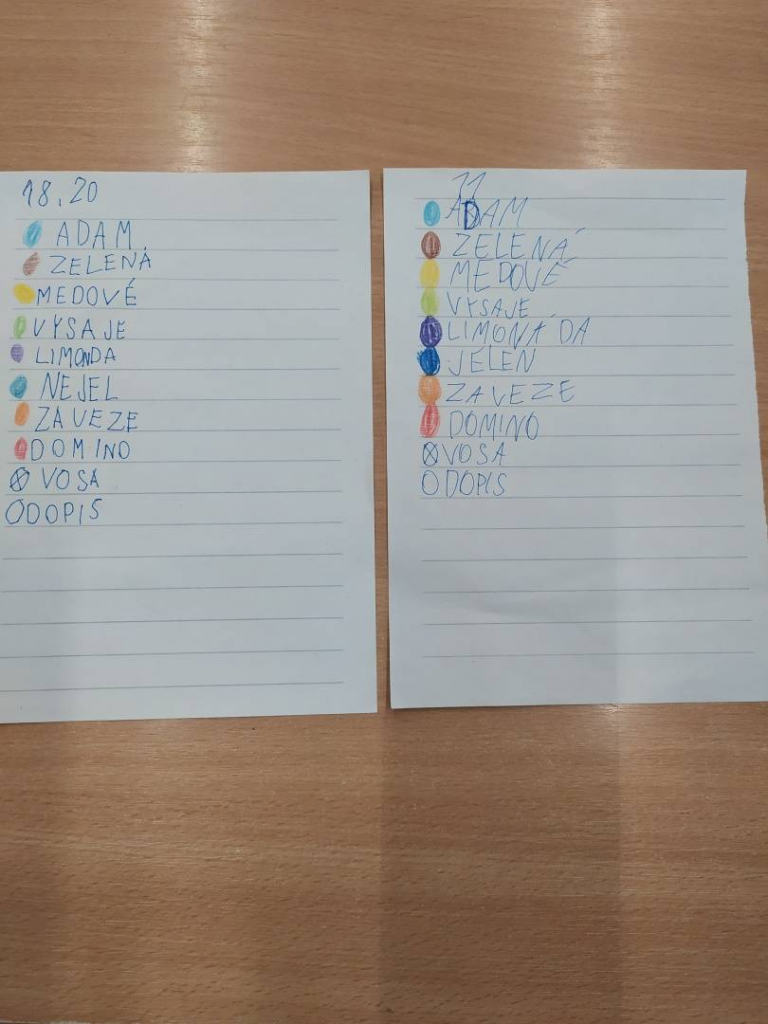 18,20
ADAM
ZELENÁ
MEDOVÉ
VYSAJE
LIMONDA
NEJEL
ZAVEZE
DOMINO
VOSA
DOPIS
11
ADAM
ZELENÁ
MEDOVÉ
VYSAJE
LIMONÁDA
JELEN
ZAVEZE
DOMINO
VOSA
DOPIS